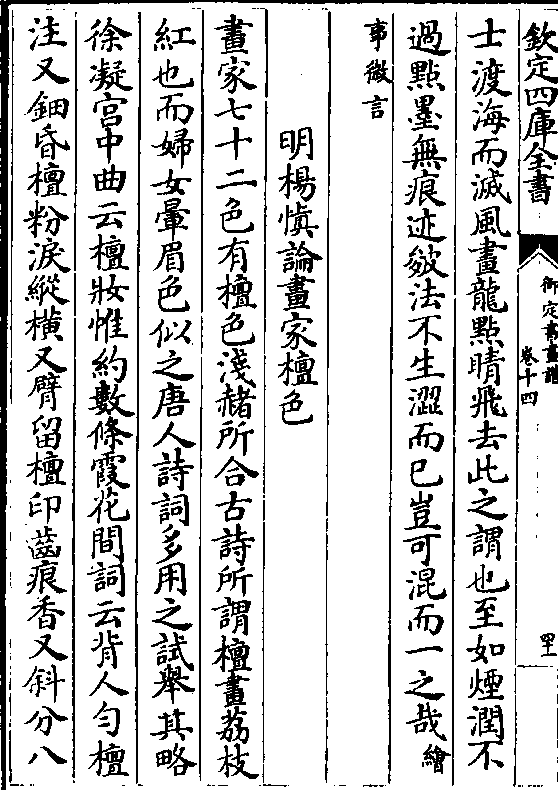 欽定四庫全書
御定書畫譜
卷十四
四十
士渡海而滅風畫龍點睛飛去此之謂也至如煙潤不
過點墨無痕迹皴法不生澀而已豈可混而一之哉繪
事微言
明楊慎論畫家檀色
畫家七十二色有檀色淺赭所合古詩所謂檀畫荔枝
紅也而婦女暈眉色似之唐人詩詞多用之試舉其略
徐凝宮中曲云檀妝惟約數條霞花間詞云背人勻檀
注又鈿昏檀粉淚縱橫又臂留檀印齒痕香又斜分八